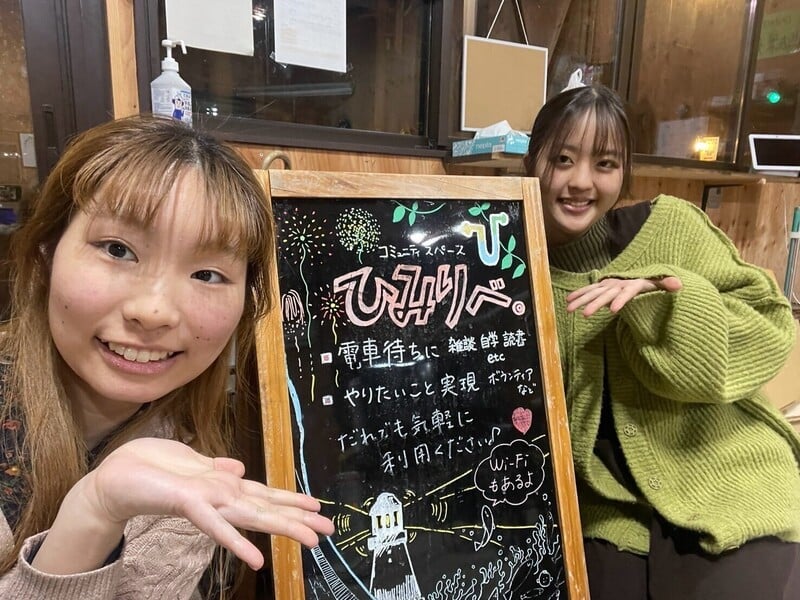 コミュニティスペース
ひみりべ。
電車待ちに 雑談 自学 読書 etc
やりたいこと実現 ボランティアなど
だれでも気軽に
利用ください♪
Wi-Fi
もあるよ
nepia